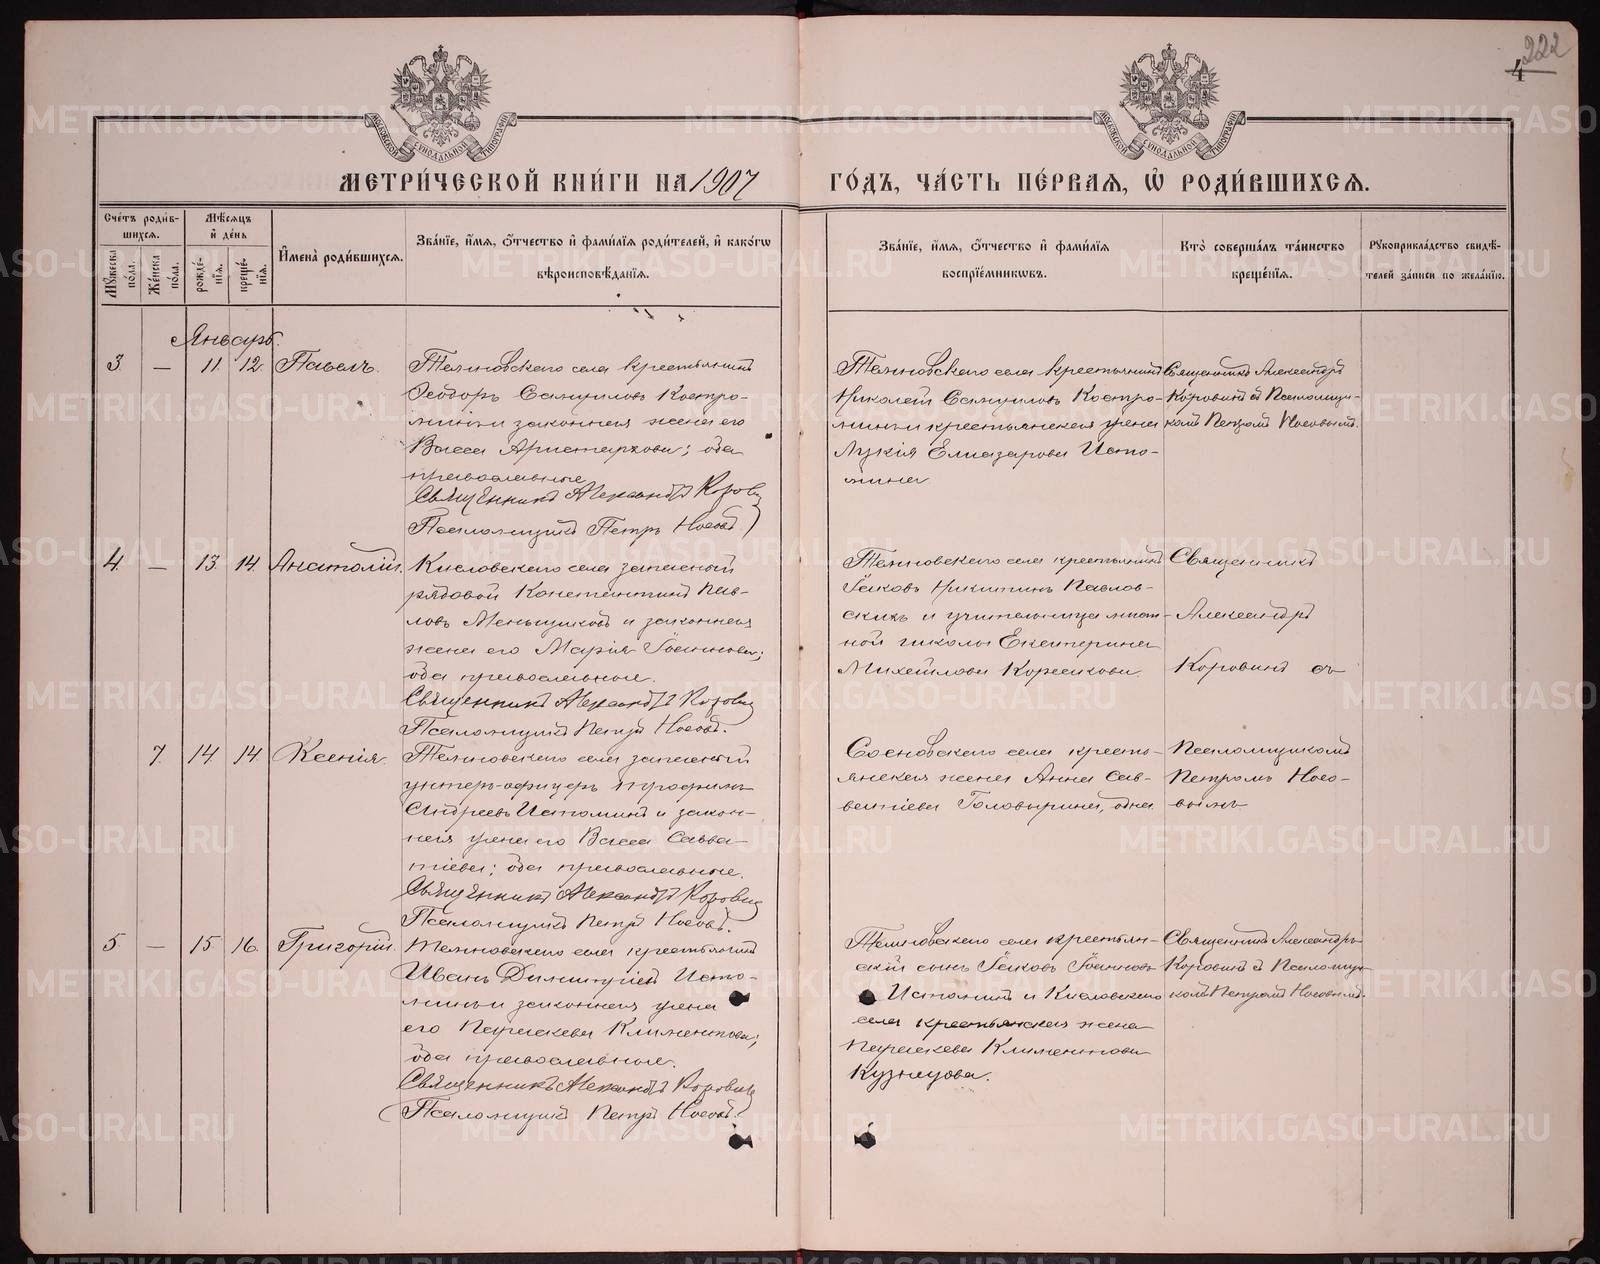 222
4
МЕТРИ́ЧЕСКОЙ КНИ́ГИ НА 1907 ГО́ДЪ, ЧА́СТЬ ПЕ́РВАЯ, Ѡ РОДИ́ВШИХСЯ.
Сче́тъ роди́в-
шихся.
Му́жеска по́ла.
Же́нска по́ла.
Мѣ́сяцъ
и҆ де́нь
рожде́-
нїя.
креще́-
нїя.
И҆мена̀ роди́вшихся.
Зва́нїе, и҆́мя, ѻ҆́тчество и҆ фами́лїя роди́телей, и҆ како́гѡ
вѣроисповѣ́данїя.
Зва́нїе, и҆́мя, ѻ҆́тчество и҆ фами́лїя
воспрїе́мниковъ.
Кто̀ соверша́лъ та́инство
креще́нїя.
Рꙋкоприкла́дство свидѣ́-
телей за́писи по жела́нїю.
Январь.
3. — 11. 12. Павелъ.
Теминовскаго села крестьянинъ
Ѳеодоръ Самуиловъ Костро-
минъ и законная жена его
Васса Аристархова; оба
православные
Священникъ Александръ Коровинъ
Псаломщикъ Петръ Носовъ
крестьянинъ
Николай Самуиловъ Костро-
минъ и крестьянская жена
Лукія Елиазарова Исто-
мина
Священникъ Александръ
Коровинъ съ Псаломщи-
комъ Петромъ Носовымъ.
4. — 13. 14. Анатолій.
Кисловскаго села запасный
рядовой Константинъ Пав-
ловъ Меньщиковъ и законная
жена его Марія Іоаннова;
оба православные.
Священникъ Александръ Коровинъ
Псаломщикъ Петръ Носовъ.
села крестьянинъ
Іаковъ Никитинъ Павлов-
скихъ и учительница
ной школы Екатерина
Михайлова
Священникъ
Александръ
Коровинъ съ
7. 14. 14. Ксенія.
села запасный
унтеръ-офицеръ Трофимъ
Андреевъ Истоминъ и закон-
ная жена его Васса Савва-
тіева; оба православные.
Священникъ Александръ Коровинъ
Псаломщикъ Петръ Носовъ.
Сосновскаго села кресть-
янская жена Анна Сав-
ватіева Головырина, одна
Псаломщикомъ
Петромъ Носо-
вымъ
5. — 15. 16. Григорій.
села крестьянинъ
Иванъ Димитріевъ Исто-
минъ и законная жена
его Параскева Климентова;
оба православные.
Священникъ Александръ Коровинъ
Псаломщикъ Петръ Носовъ.
села крестьян-
скій сынъ Іаковъ Іоанновъ
Истоминъ и Кисловскаго
села крестьянская жена
Параскева Климентова
Кузнецова.
Священникъ Александръ
Коровинъ съ Псаломщи-
комъ Петромъ Носовымъ.
METRIKI.GASO-URAL.RU